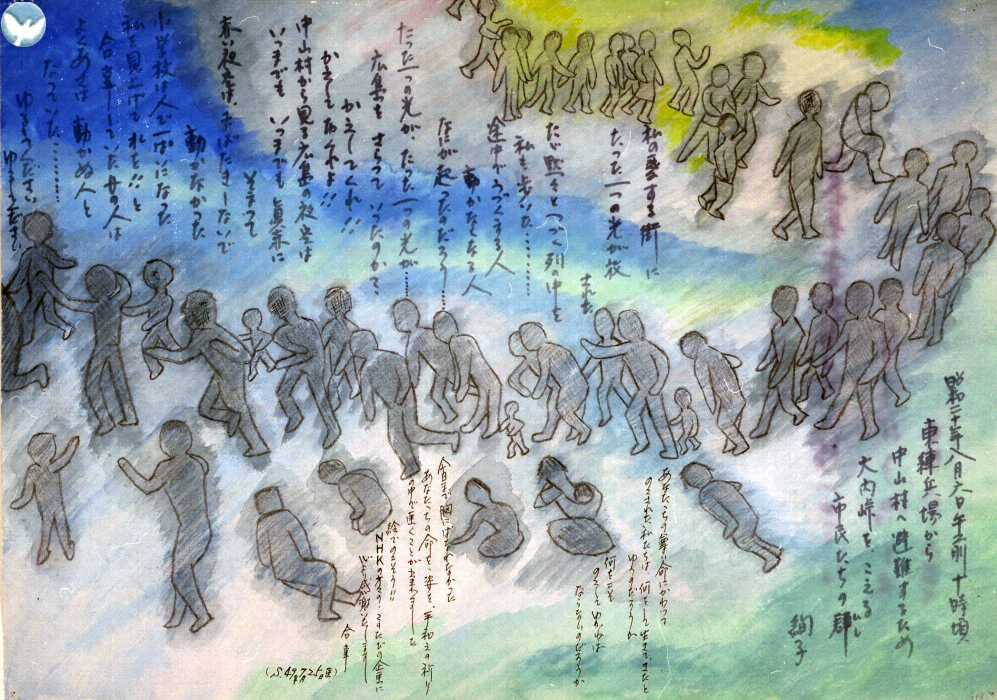 昭和二十年八月六日午前十時頃
東練兵場から
中山村へ避難するため
大内峠を、こえる
市民たちの群
むし
絢子
私の愛する街に
たった一つの光が
たゞ黙々とつづく列の中を
私も歩いた………
途中でうづくまる人
動かなくなる人
何が起ったのだろう……
たった一つの光が、たった一つの光が……
広島を さらって いったのか?
かえしてくれ!!
かえしておくれよ!!
中山村から見る広島の夜空は
いつまでも いつまでも 真赤に
そまって
動かなかった
赤い夜空は、まばたきしないで
小学校は人で一ぱいになった
私を見上げて 水を!! と
合掌していた女の人は
よあくは 動かぬ人と
なっていた………
ゆるしてください
あなたたちの尊い命にかわって
のこされた私たちは、何をして生きてきたと
ゆうのだろうか
何をを
のこしてゆかねば
ならないのだろうか
今日まで胸に
あなたたちの命を、姿を、平和えの祈り
の中で画くことが出来ました
絵でのこそう!!
NHKの方々の、このたびの企画に
心より感謝いたします
合掌
(S.49.7.25画)